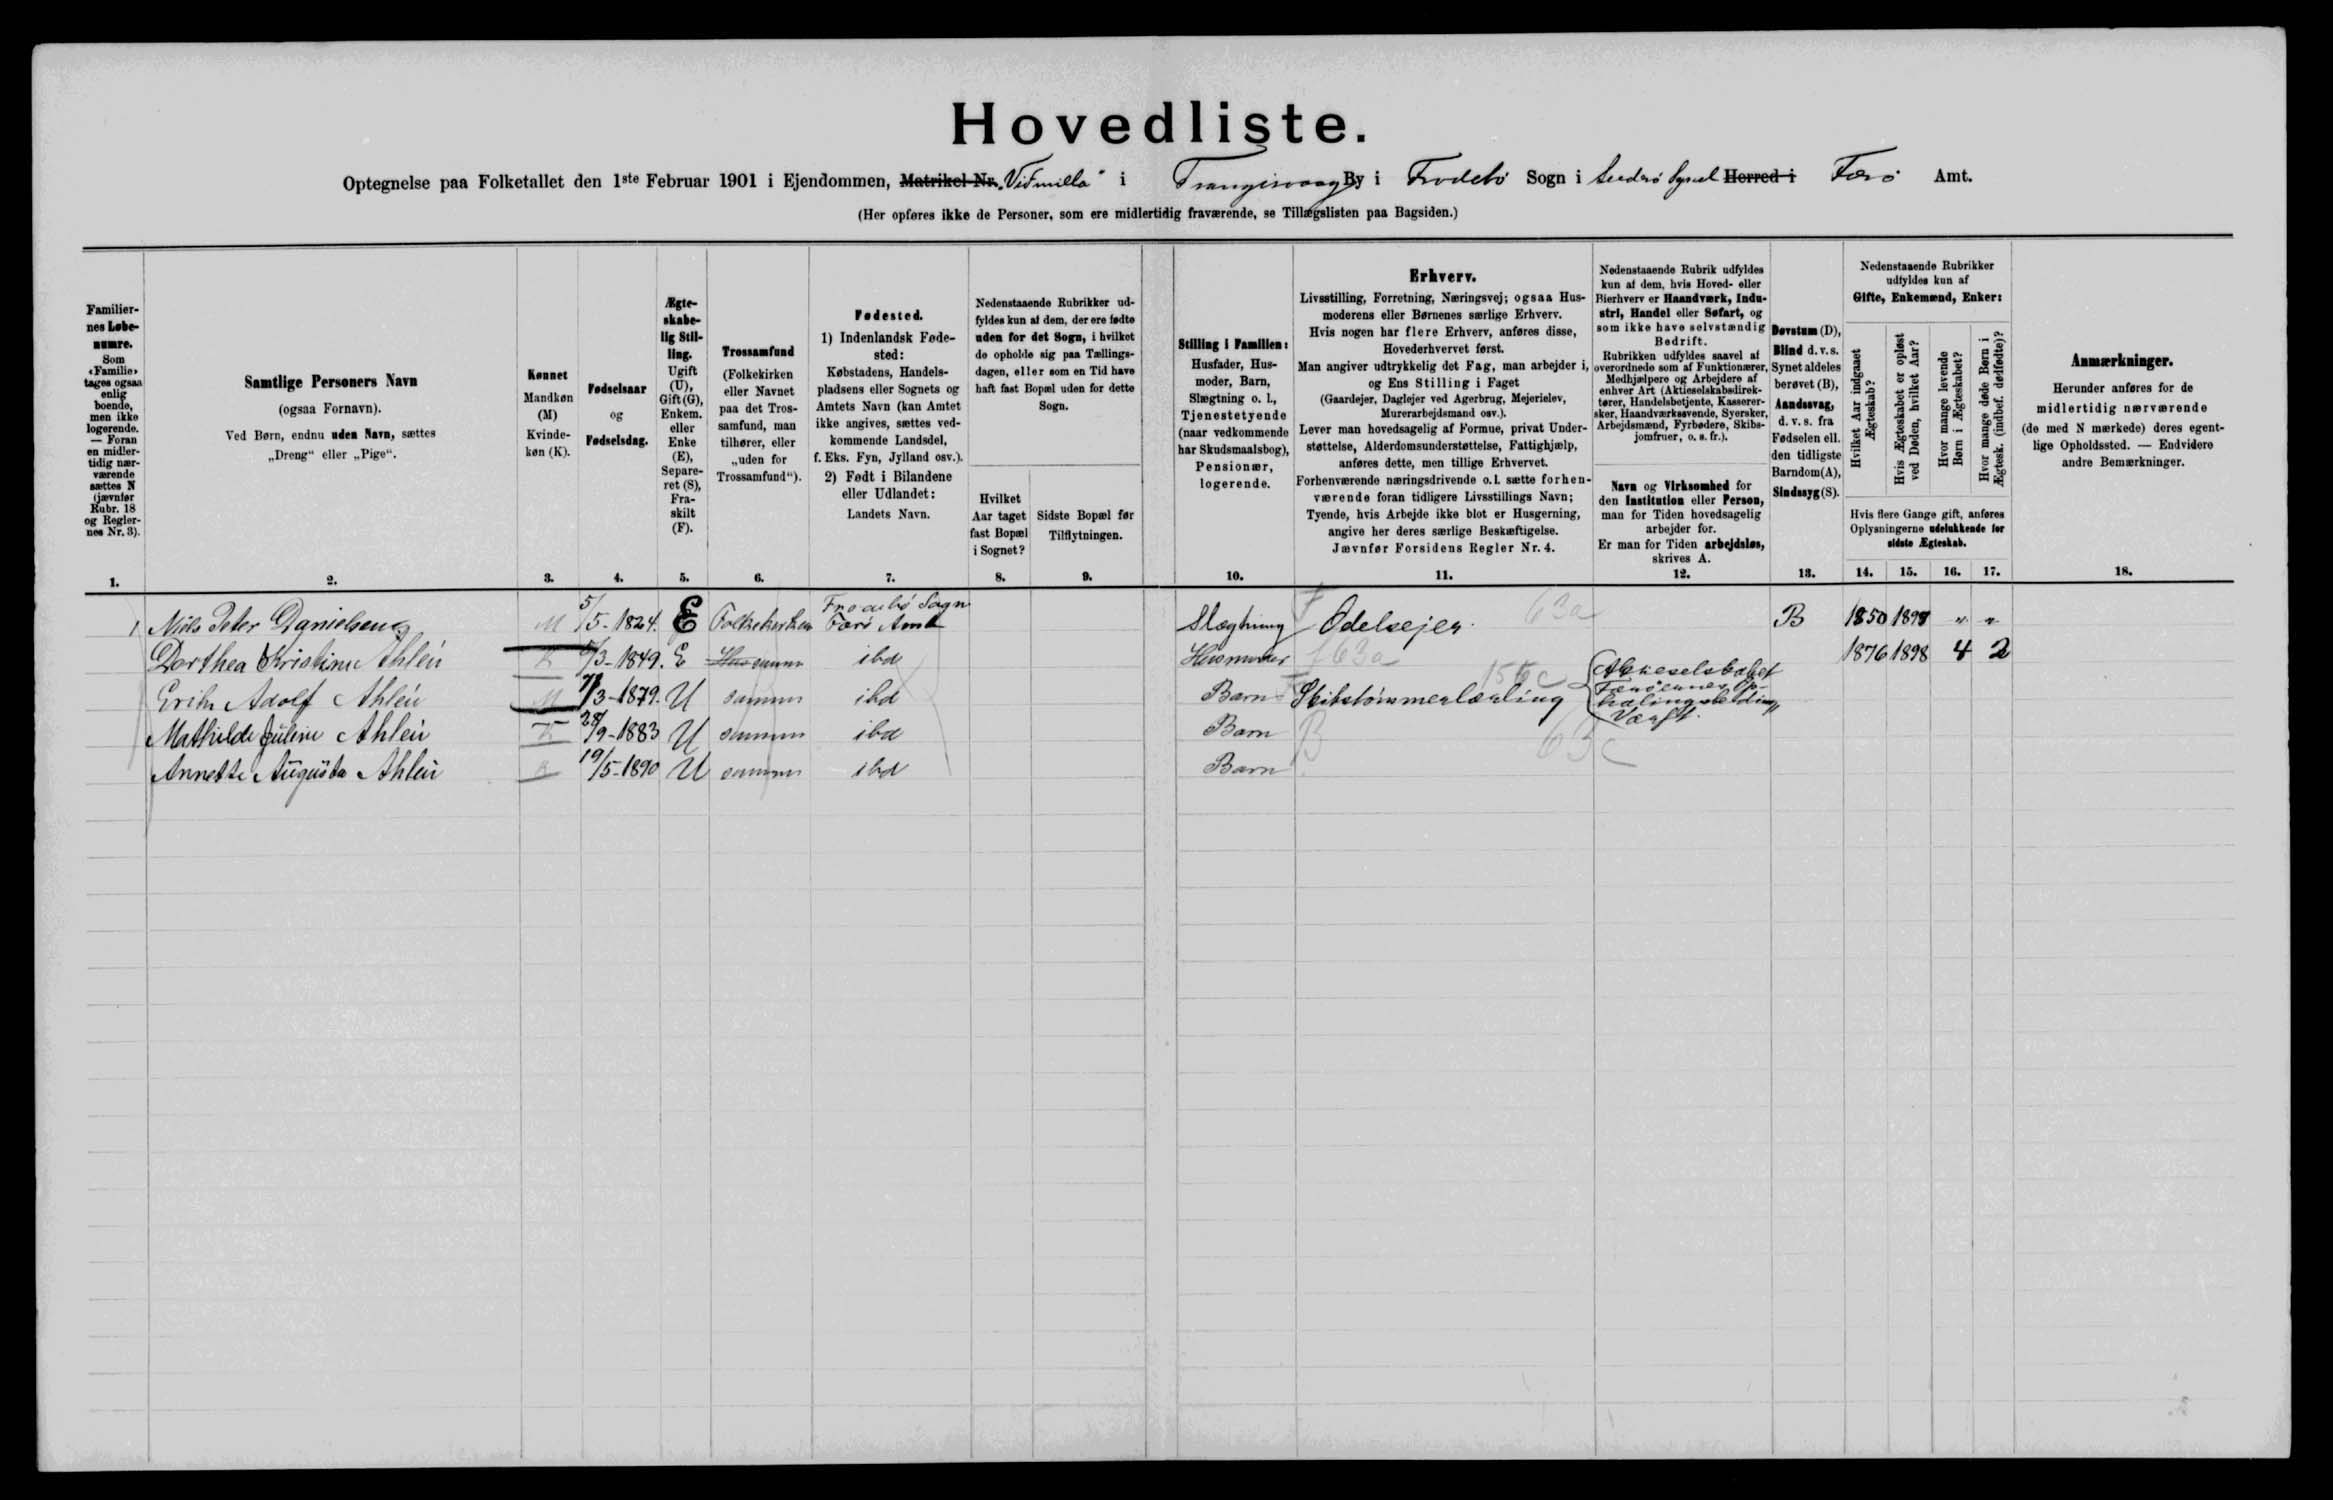 Hovedliste.
Optegnelse paa Folketallet den 1ste Februar 1901 i Ejendommen, Matrikel-Nr. i Trangisvaag By i Frodebø Sogn i Suderø Syssel Herred i Færø Amt.
(Her opføres ikke de Personer, som ere midlertidig fraværende, se Tillægslisten paa Bagsiden.)
Familiernes Løbenumre.
Som «Familie» tages ogsaa enlig boende, men ikke logerende. — Foran en midlertidig nærværende sættes N (jævnfør Rubr. 18 og Reglernes Nr. 3).
1.
Samtlige Personers Navn
(ogsaa Fornavn).
Ved Børn, endnu uden Navn, sættes
„Dreng" eller „Pige".
2.
Kønnet
Mandkøn (M)
Kvindekøn (K).
3.
Fødselsaar
og
Fødselsdag.
4.
Ægteskabelig Stilling.
Ugift (U), Gift (G), Enkem. eller Enke (E), Separeret (S), Fraskilt (F).
5.
Trossamfund
(Folkekirken eller Navnet paa det Trossamfund, man tilhører, eller „uden for Trossamfund").
6.
Fødested.
1) Indenlandsk Fødested:
Købstadens, Handelspladsens eller Sognets og Amtets Navn (kan Amtet ikke angives, sættes vedkommende Landsdel, f. Eks. Fyn, Jylland osv.).
2) Født i Bilandene eller Udlandet:
Landets Navn.
7.
Nedenstaaende Rubrikker udfyldes kun af dem, der ere fødte uden for det Sogn, i hvilket de opholde sig paa Tællingsdagen, eller som en Tid have haft fast Bopæl uden for dette Sogn.
Hvilket Aar taget fast Bopæl i Sognet?
8.
Sidste Bopæl før Tilflytningen.
9.
Stilling i Familien:
Husfader, Husmoder, Barn, Slægtning o. l., Tjenestetyende (naar vedkommende har Skudsmaalsbog), Pensionær, logerende.
10.
Erhverv.
Livsstilling, Forretning, Næringsvej; ogsaa Husmoderens eller Børnenes særlige Erhverv.
Hvis nogen har flere Erhverv, anføres disse, Hovederhvervet først.
Man angiver udtrykkelig det Fag, man arbejder i, og Ens Stilling i Faget
(Gaardejer, Daglejer ved Agerbrug, Mejerielev, Murerarbejdsmand osv.).
Lever man hovedsagelig af Formue, privat Understøttelse, Alderdomsunderstøttelse, Fattighjælp, anføres dette, men tillige Erhvervet.
Forhenværende næringsdrivende o. l. sætte forhenværende foran tidligere Livsstillings Navn;
Tyende, hvis Arbejde ikke blot er Husgerning, angive her deres særlige Beskæftigelse.
Jævnfør Forsidens Regler Nr. 4.
11.
Nedenstaaende Rubrik udfyldes kun af dem, hvis Hoved- eller Bierhverv er Haandværk, Industri, Handel eller Søfart, og som ikke have selvstændig Bedrift.
Rubrikken udfyldes saavel af overordnede som af Funktionærer, Medhjælpere og Arbejdere af enhver Art (Aktieselskabsdirektører, Handelsbetjente, Kasserersker, Haandværkssvende, Syersker, Arbejdsmænd, Fyrbødere, Skibsjomfruer, o. s. fr.).
Navn og Virksomhed for den Institution eller Person, man for Tiden hovedsagelig arbejder for.
Er man for Tiden arbejdsløs, skrives A.
12.
Døvstum (D), Blind d. v. s. Synet aldeles berøvet (B), Aandssvag, d. v. s. fra Fødselen ell. den tidligste Barndom (A), Sindssyg (S).
13.
Nedenstaaende Rubrikker udfyldes kun af Gifte, Enkemænd, Enker:
Hvilket Aar indgaaet Ægteskab?
Hvis Ægteskabet er opløst ved Døden, hvilket Aar?
Hvor mange levende Børn i Ægteskabet?
Hvor mange døde Børn i Ægtesk. (indbef. dødfødte)?
Hvis flere Gange gift, anføres Oplysningerne udelukkende for sidste Ægteskab.
14. 15. 16. 17.
Anmærkninger.
Herunder anføres for de midlertidig nærværende (de med N mærkede) deres egentlige Opholdssted. — Endvidere andre Bemærkninger.
18.
1 Niels Peter Danielsen M 5/5-1824. E Folkekirken Frodebø Sogn Færø Amt Slægtning Odelsejer. 63a B 1850 " "
Dorthea Kristine Ahlén K /3-1849. E samme ibd Husmoder 63a 1876 1898 4 2
Erik Adolf Ahlén M /3-1879. U samme ibd Barn Skibstømmerlærling Aktieselskabet Færøernes Ophalingsbedding Værft.
Mathilde Juline Ahlén K 28/9-1883 U samme ibd Barn 63c
Annette Augusta Ahlén K 19/5-1890 U samme ibd Barn